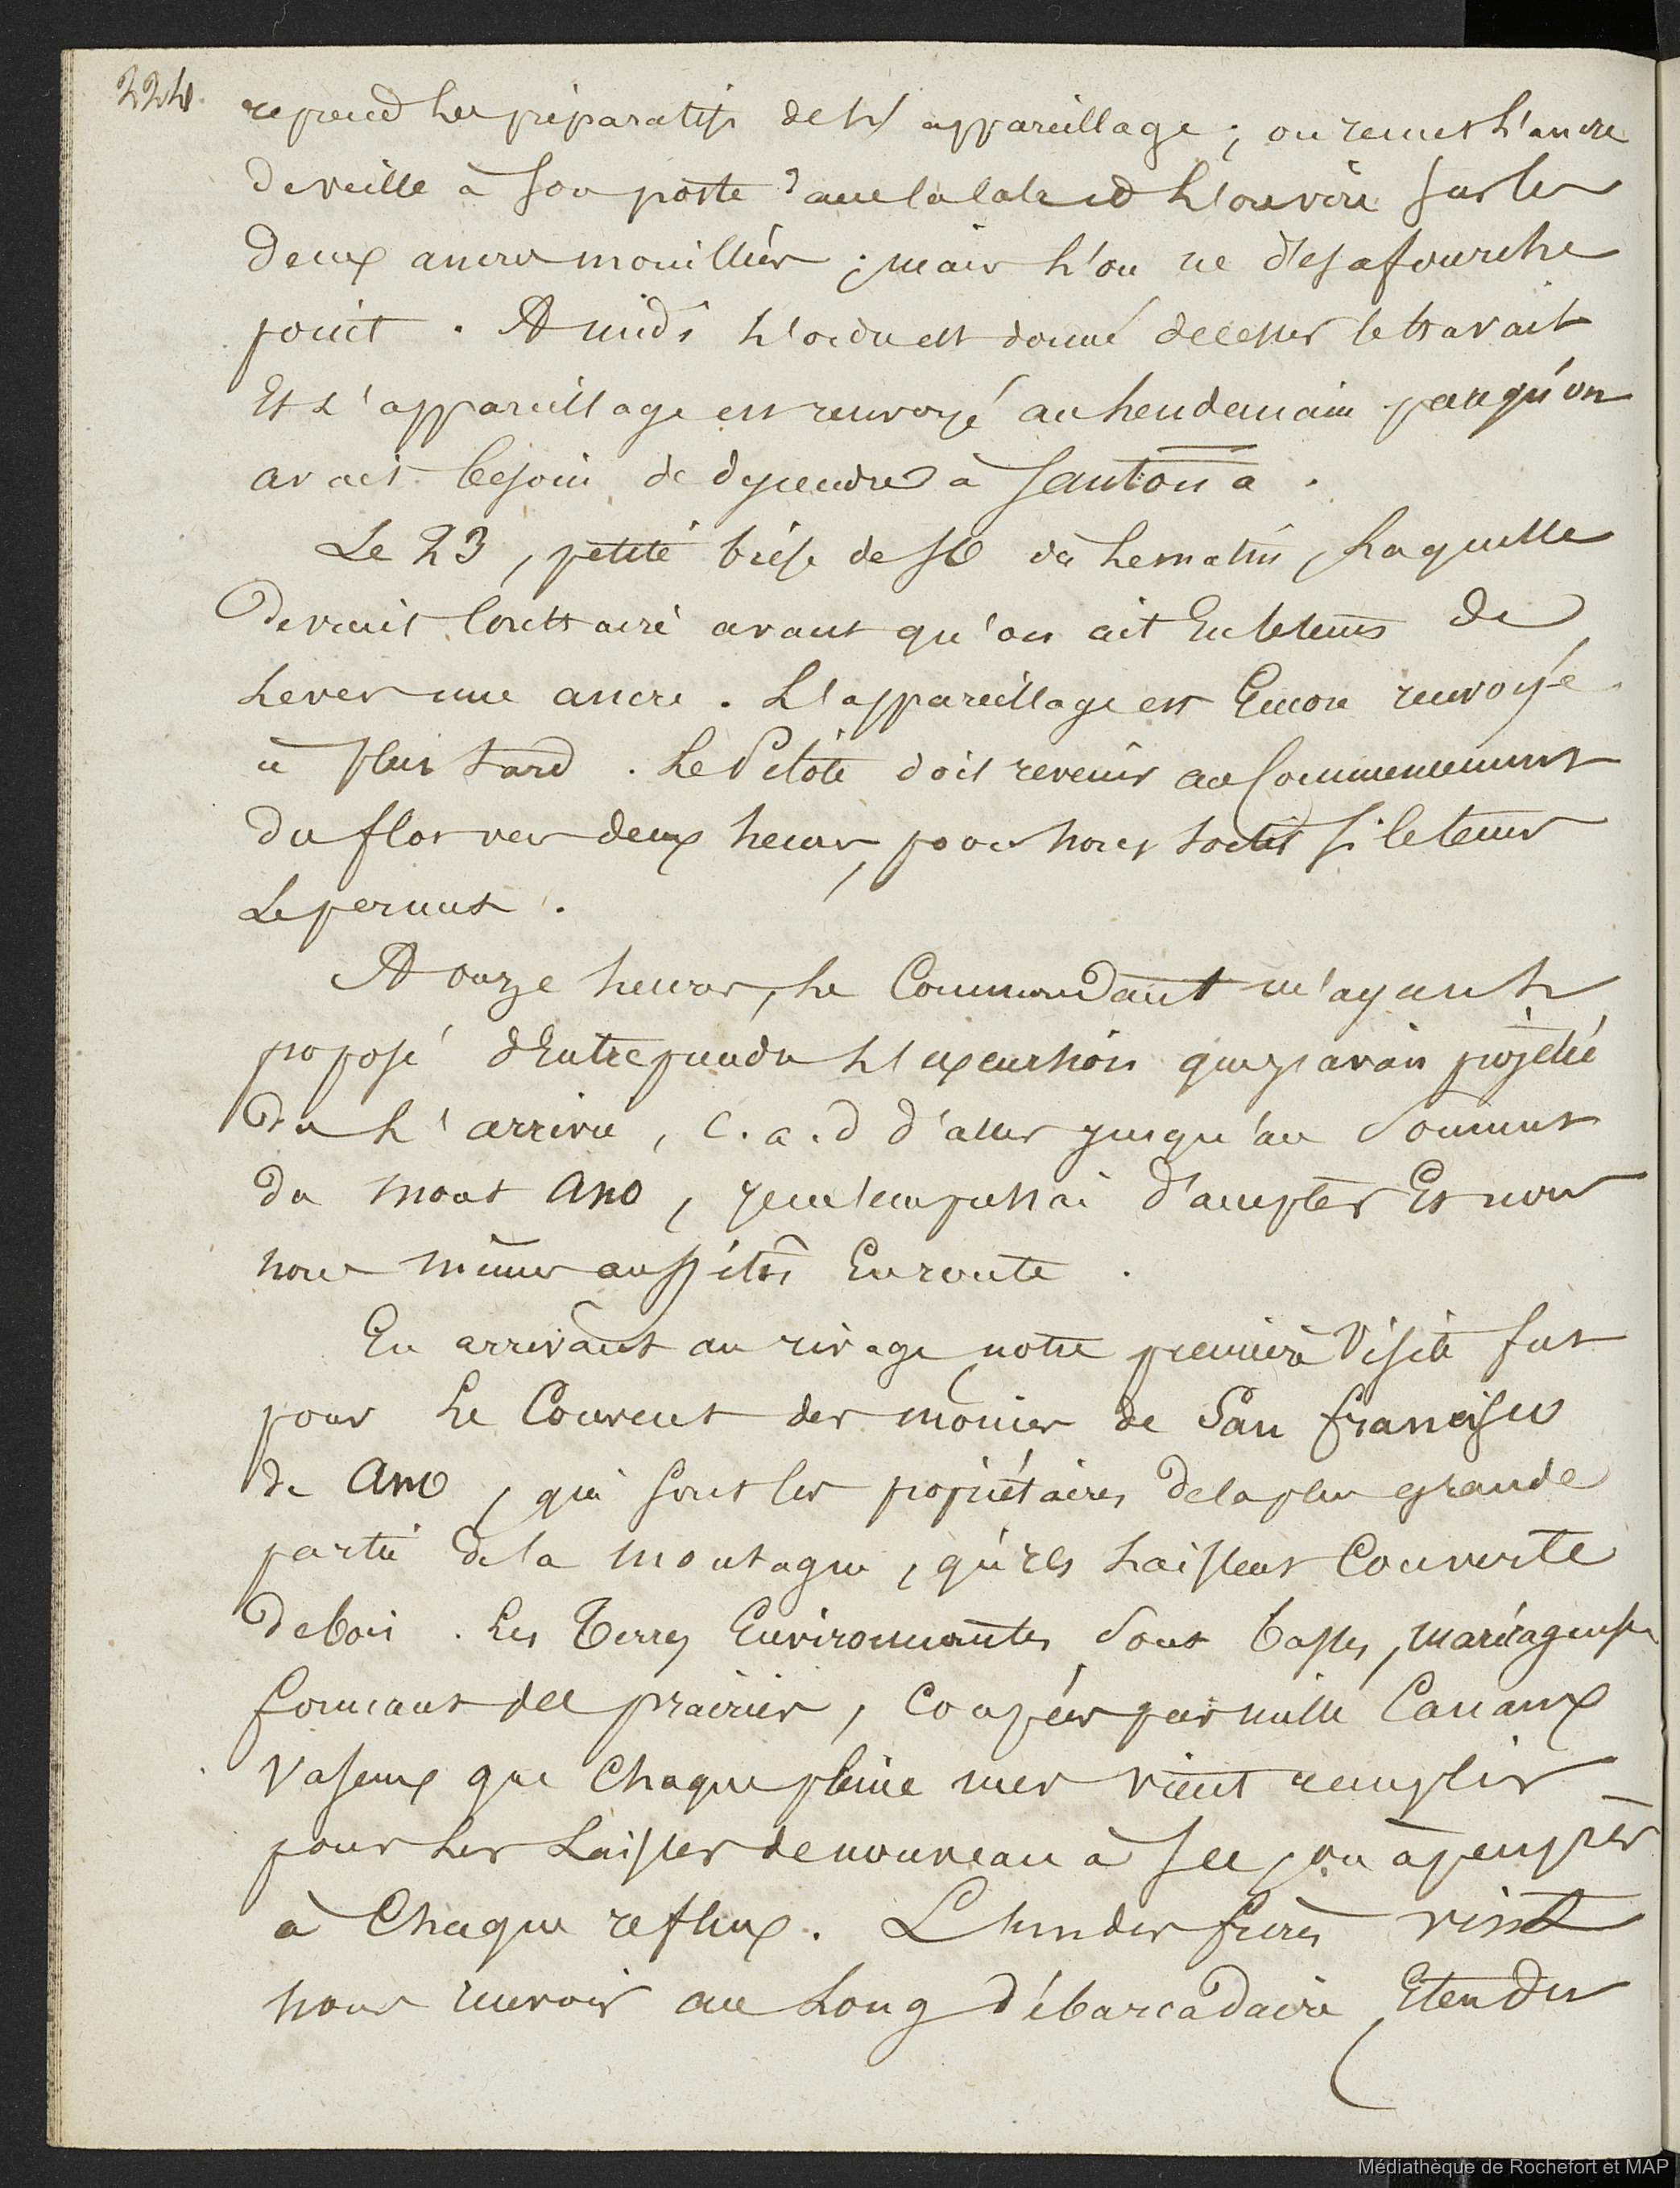 224.
reprend les préparatifs de l'appareillage ; on remet l'ancre
de veille à son poste dans la cale et l'on vire sur les
deux ancres mouillées ; mais l'on ne désafourche
point. A midi l'ordre est donné de cesser le travail
Et l'appareillage est renvoyé au lendemain parcequ'on
avait besoin de descendre à Santona.
Le 23, petite brise de SO dès le matin, laquelle
devient contraire avant qu'on ait Eu le tems de
lever une ancre. L'appareillage est Encore renvoyé
à plus tard. Le Pilote doit revenir au Commencement
du flot vers deux heures, pour nous sortir si le tems
Le permet.
A onze heures, le Commandant m'ayant
proposé d'Entreprendre l'excursion que j'avais projetée
dès l'arrivée, c.a.d d'aller jusqu'au Sommet
du mont Ano, je m'empressai d'accepter Et nous
nous mîmes aussitôt En route.
En arrivant au rivage notre première Visite fut
pour le Couvent des moines de San francisco
de Ano, qui sont les propriétaires de la plus grande
partie de la montagne, qu'ils laissent Couverte
de bois. Les Terres Environnantes Sont basses, marécageuses
formant des prairies, coupées par mille Canaux
Vaseux que Chaque pleine mer vient remplir
pour les Laisser de nouveau à sec, ou à peu près
à Chaque reflux. L'un des frères vint
nous recevoir au Long débarcadaire, Etendu
Médiathèque de Rochefort et MAP